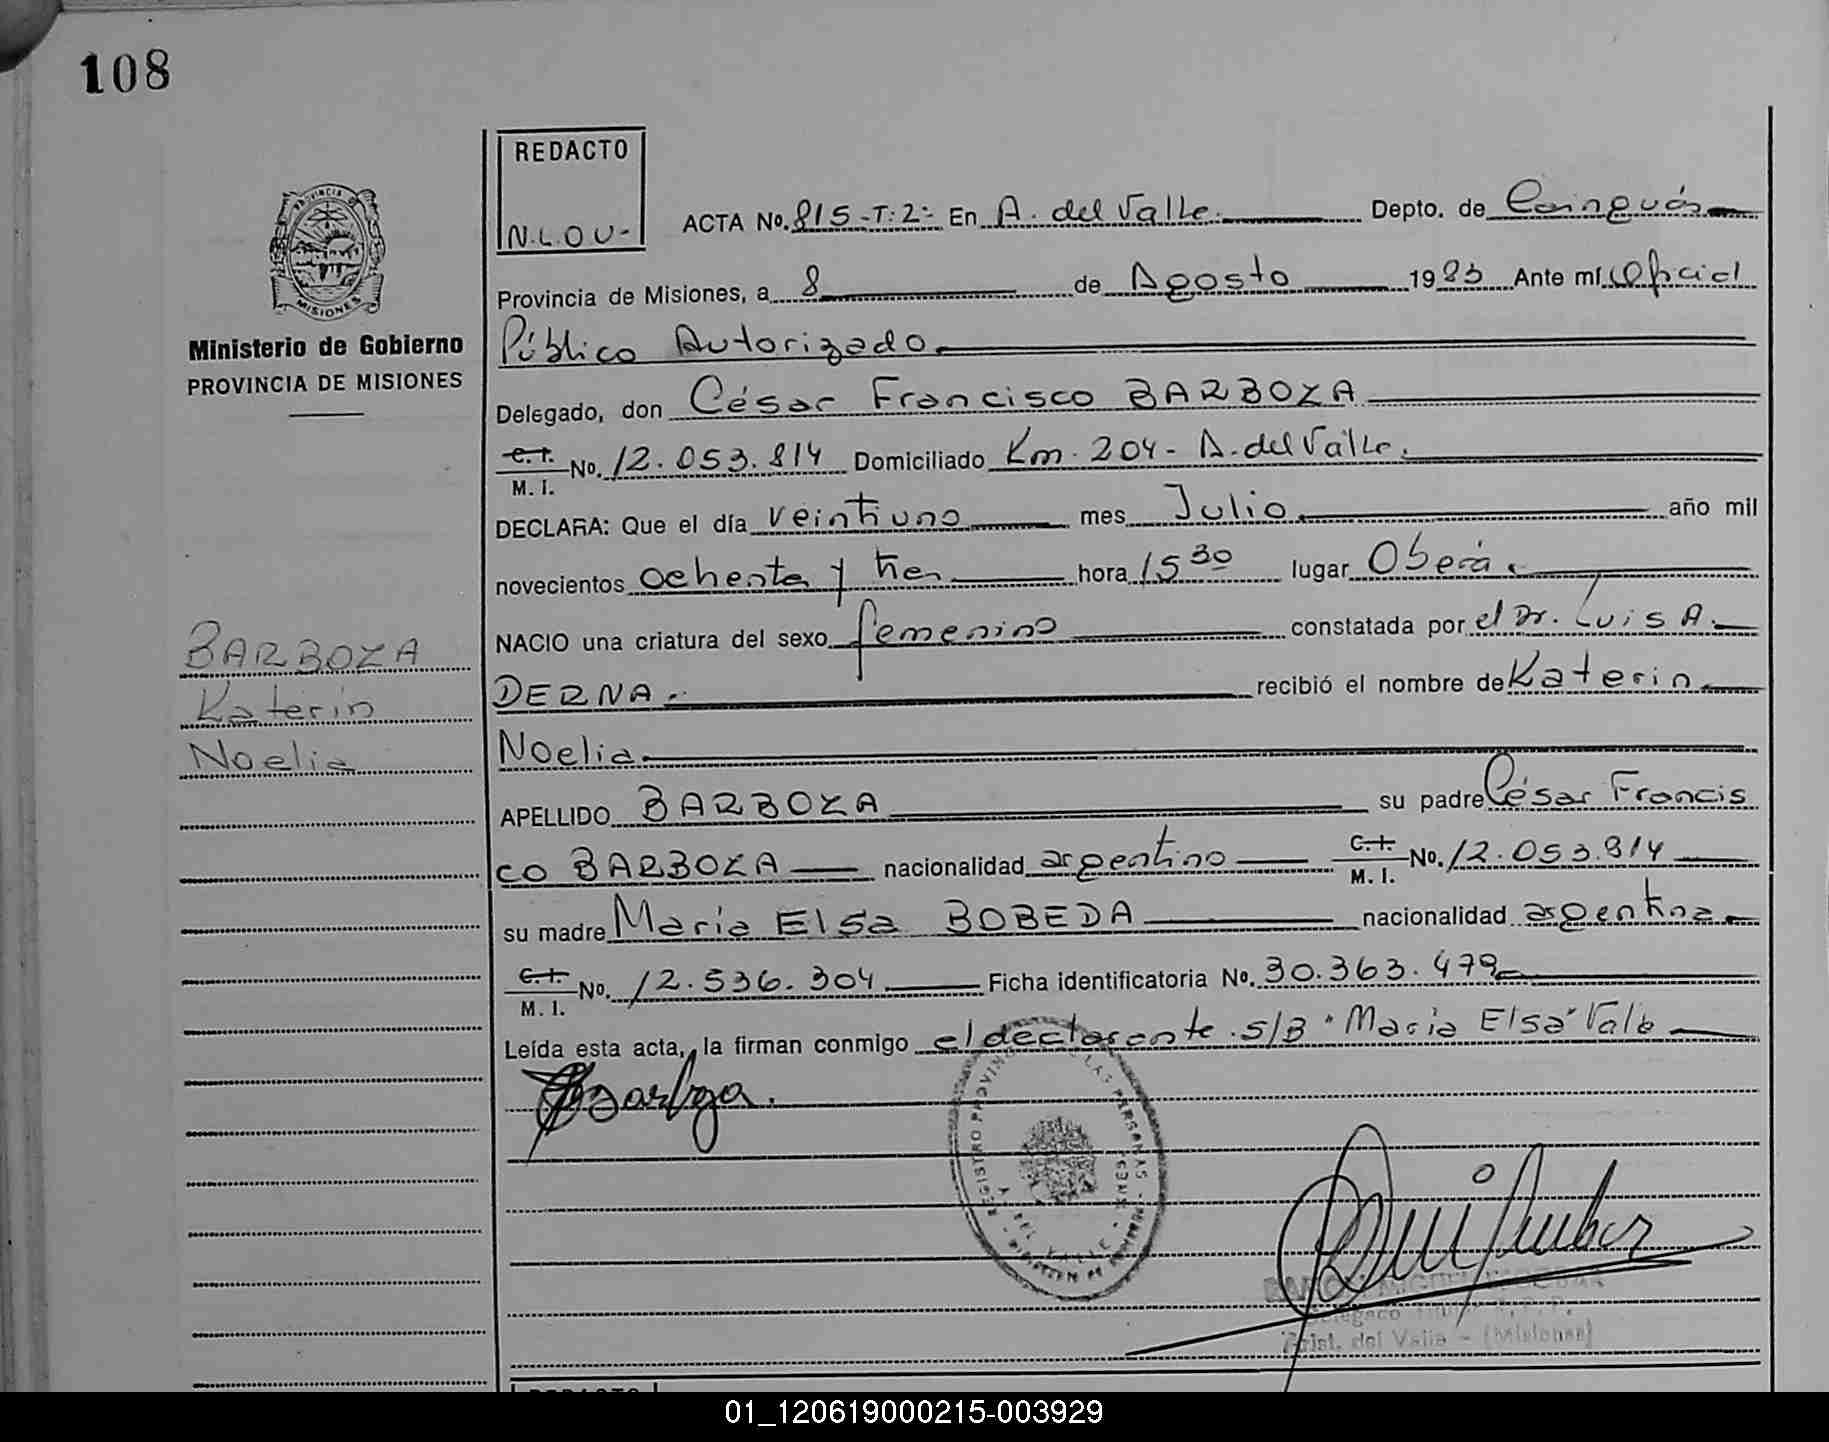 108
REDACTO
N.L.O.U-
PROVINCIA DE
MISIONES
Ministerio de Gobierno
PROVINCIA DE MISIONES
ACTA No. 815-T:2- En A. del Valle. Depto. de Cainguás
Provincia de Misiones, a 8 de Agosto 1983 Ante mí Oficial
Público Autorizado.
Delegado, don César Francisco BARBOZA
C.I. M.I. No. 12.053.814 Domiciliado Km. 204- A. del Valle.
DECLARA: Que el día veintiuno mes Julio año mil
novecientos ochenta y tres hora 15 30 lugar Oberá.
NACIO una criatura del sexo femenino constatada por el Dr. Luis A.
DERNA. recibió el nombre de Katerin
Noelia.
BARBOZA
Katerin
Noelia
APELLIDO BARBOZA su padre César Francis
co BARBOZA nacionalidad argentino C.I. M.I. No. 12.053.814
su madre María Elsa BOBEDA nacionalidad argentina
C.I. M.I. No. 12.536.304 Ficha identificatoria No. 30.363.479
Leída esta acta, la firman conmigo el declarante. S/B "María Elsa" Vale
Barboza.
REGISTRO PROVINCIAL LAS PERSONAS
DEL VALLE
Delegado
Arist. del Valle - (Misiones)
REDACTO
01_120619000215-003929